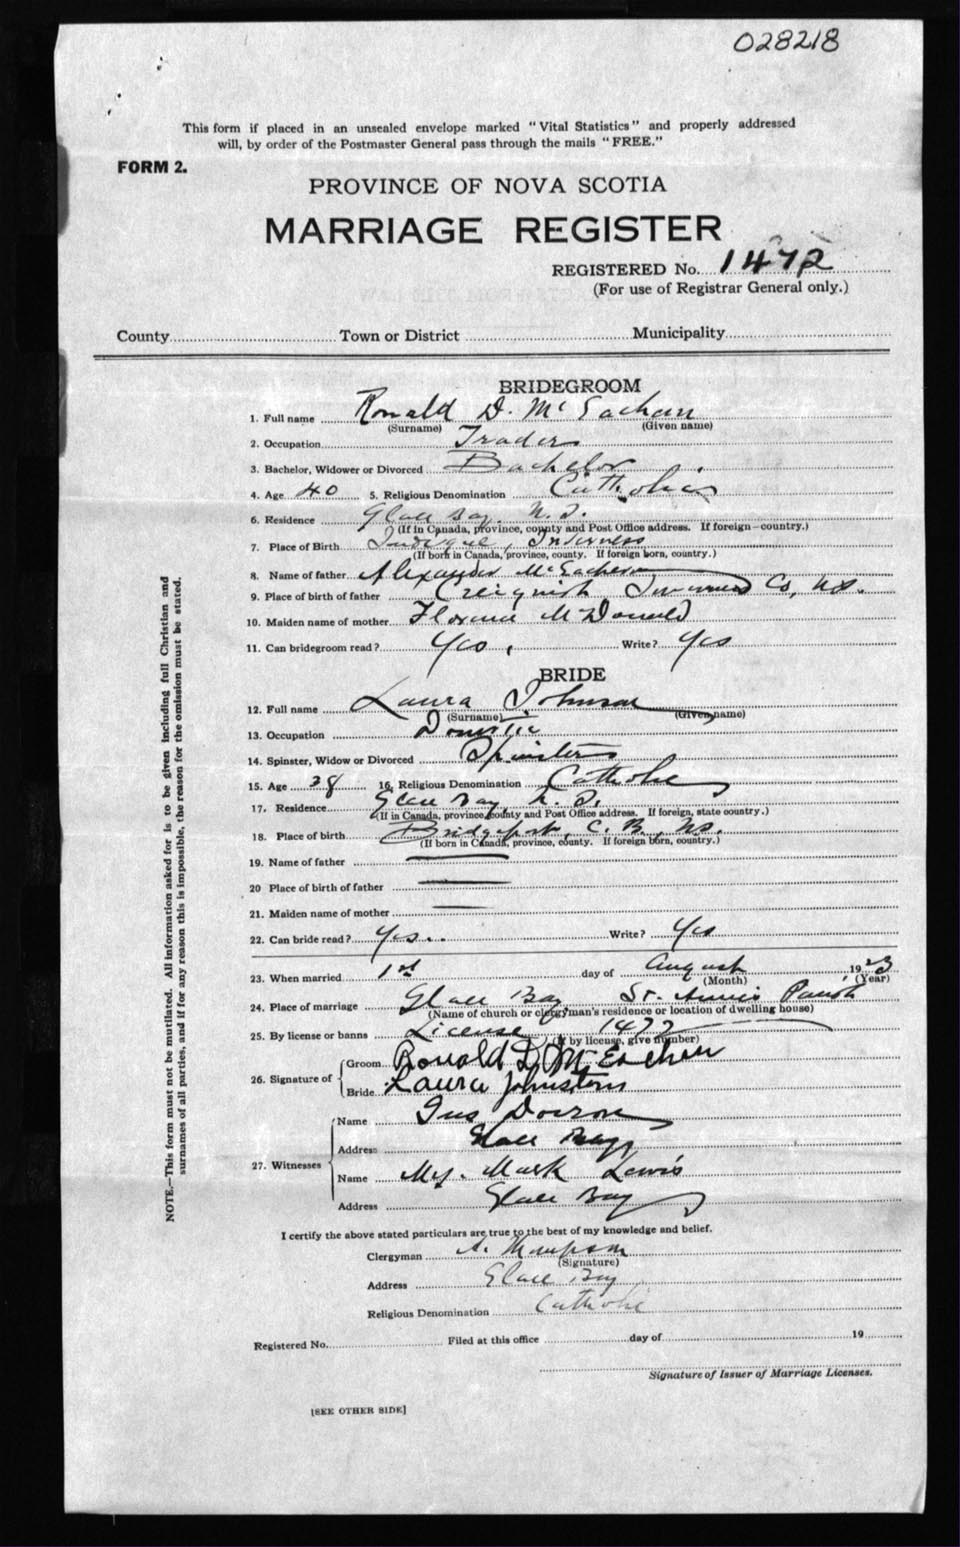 028218
This form if placed in an unsealed envelope marked "Vital Statistics" and properly addressed
will, by order of the Postmaster General pass through the mails "FREE."
FORM 2.
PROVINCE OF NOVA SCOTIA
MARRIAGE REGISTER
REGISTERED No. 1472
(For use of Registrar General only.)
County Town or District Municipality
BRIDEGROOM
1. Full name Ronald D. McEachern
(Surname) (Given name)
2. Occupation Trader
3. Bachelor, Widower or Divorced Bachelor
4. Age 40 5. Religious Denomination Catholic
6. Residence Glace Bay, N.S.
(If in Canada, province, county and Post Office address. If foreign—country.)
7. Place of Birth Judique, Inverness
(If born in Canada, province, county. If foreign born, country.)
8. Name of father Alexander McEachern
9. Place of birth of father Creignish Inverness Co, N.S.
10. Maiden name of mother McDonald
11. Can bridegroom read? Yes, Write? Yes
BRIDE
12. Full name Laura Johnson
(Surname) (Given name)
13. Occupation Domestic
14. Spinster, Widow or Divorced Spinster
15. Age 38 16. Religious Denomination Catholic
17. Residence Glace Bay, N.S.
(If in Canada, province, county and Post Office address. If foreign, state country.)
18. Place of birth Bridgeport, C. B., N.S.
(If born in Canada, province, county. If foreign born, country.)
19. Name of father —
20 Place of birth of father —
21. Maiden name of mother —
22. Can bride read? Yes. Write? Yes
23. When married 1st day of August 1923
(Month) (Year)
24. Place of marriage Glace Bay St. Anne's Parish
(Name of church or clergyman's residence or location of dwelling house)
25. By license or banns License 1472
(If by license, give number)
26. Signature of Groom Ronald D McEachern
Bride Laura Johnston
27. Witnesses Name Gus Doiron
Address Glace Bay
Name Mrs. Mark Lewis
Address Glace Bay
I certify the above stated particulars are true to the best of my knowledge and belief.
Clergyman A. Thompson
(Signature)
Address Glace Bay
Religious Denomination Catholic
Registered No. Filed at this office day of 19
Signature of Issuer of Marriage Licenses.
[SEE OTHER SIDE]
NOTE.—This form must not be mutilated. All information asked for is to be given including full Christian and
surnames of all parties, and if for any reason this is impossible, the reason for the omission must be stated.